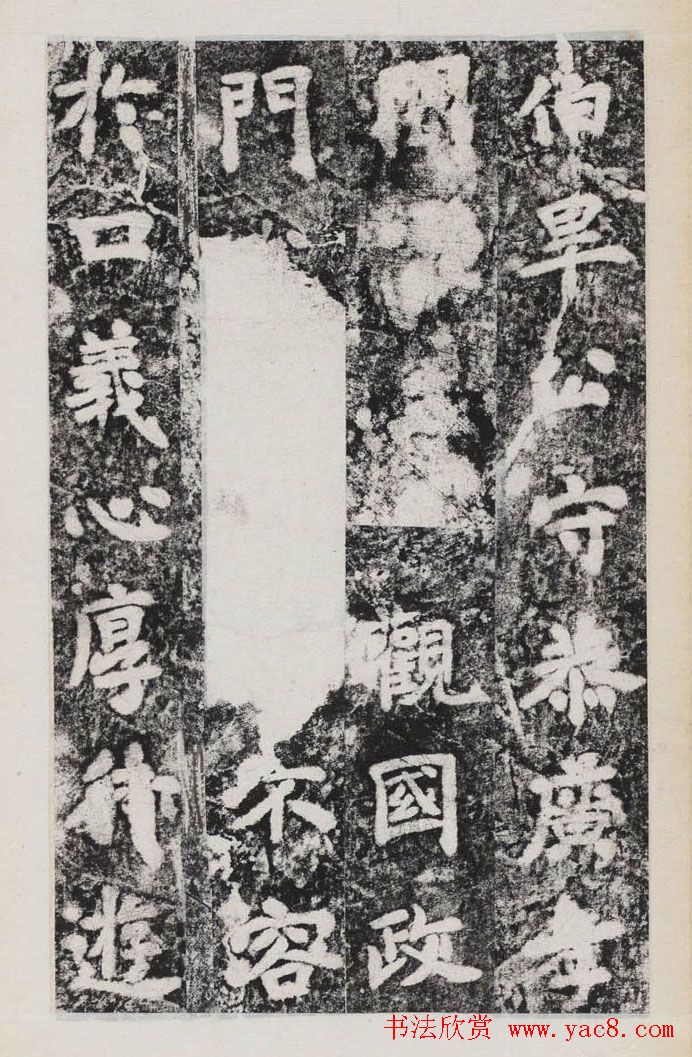 伯公守恭廣孝
觀國政
門不容
於口義心厚遊
书法欣赏 www.yac8.com